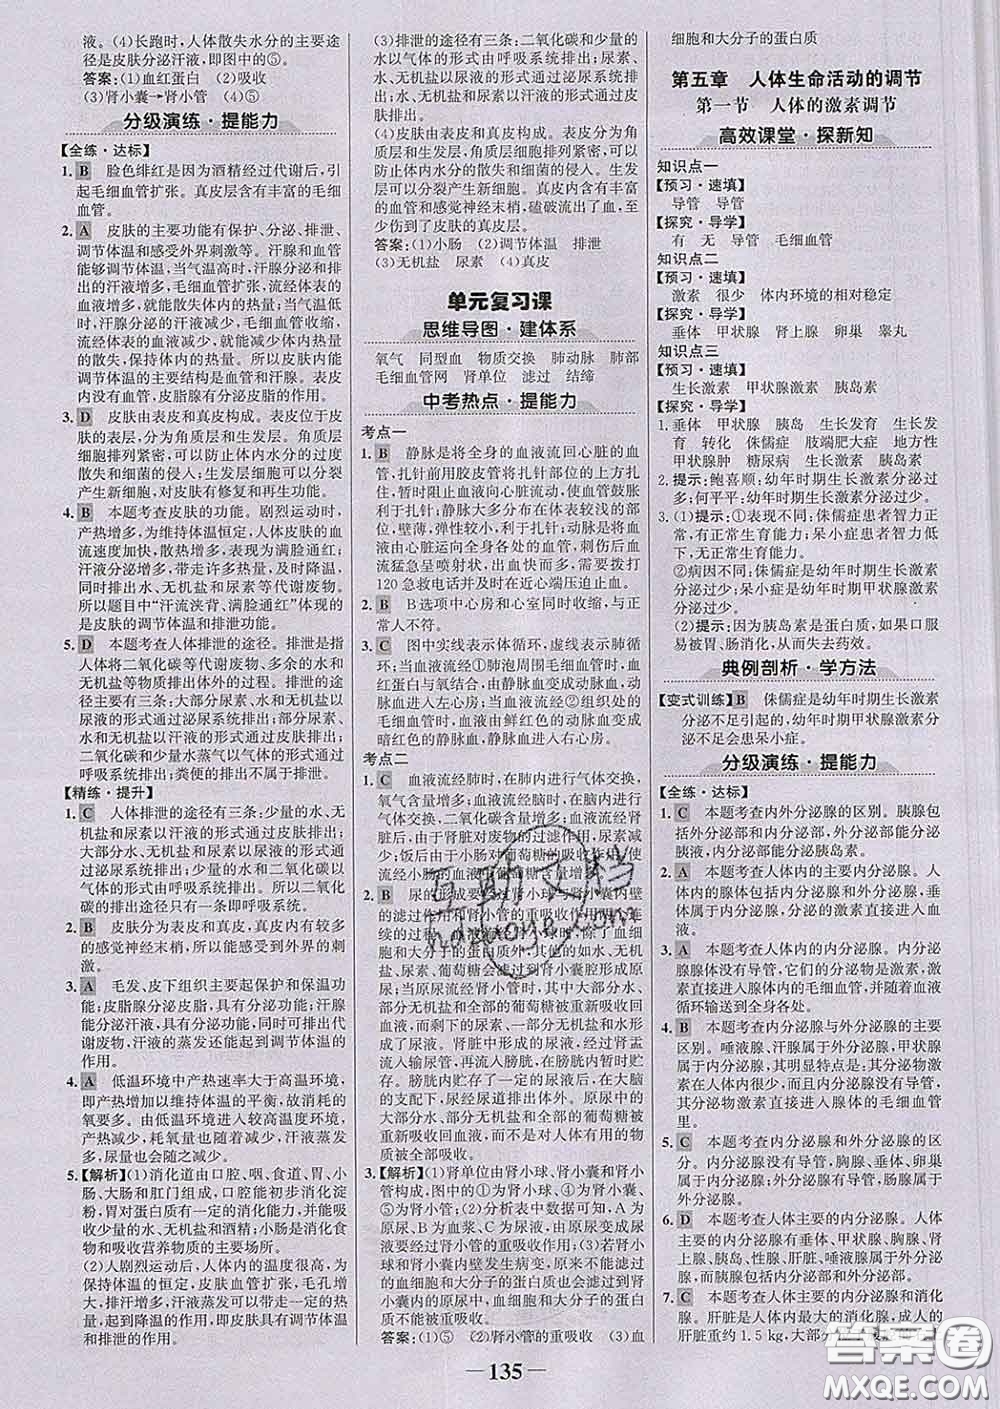 液。(4)长跑时，人体散失水分的主要途
径是分泌汗液，即图中的⑤。
答案：(1)血红蛋白　(2)吸收
(3)肾小囊→肾小管　(4)⑤
分级演练·提能力
【全练·达标】
1. B　脸色绯红是因为酒精经过代谢后，引
起毛细血管扩张。真皮层含有丰富的毛细
血管。
2. A　皮肤的主要功能有保护、分泌、排泄、
调节体温和感受外界刺激等。汗腺和血管
能够调节体温，当气温高时，汗腺分泌和排
泄的汗液增多，毛细血管扩张，流经体表的
血液增多，就能散失体内的热量；当气温低
时，汗腺分泌的汗液减少，毛细血管收缩，
流经体表的血液减少，就能减少体内热量
的散失，保持体内的热量。所以皮肤中调
节体温的主要结构是血管和汗腺。表皮
内没有血管，皮脂腺有分泌皮脂的作用。
3. D　皮肤由表皮和真皮构成。表皮位于皮
肤的表层，分为角质层和生发层。角质层
细胞排列紧密，可以防止体内水分的过度
散失和细菌的侵入；生发层的细胞可以分裂
产生新细胞，对皮肤有修复和再生作用。
4. B　本题考查皮肤的功能。剧烈运动时，
产热增多，为维持体温恒定，人体皮肤的血
流速度加快，散热增多，表现为满脸通红；
汗液分泌增多，将多余热量及时散失，降温
的同时，排出水、无机盐和尿素等代谢废物。
所以题目中“汗流浃背、满脸通红”体现的
是皮肤的调节体温和排泄功能。
5. D　本题考查人体排泄的途径。排泄是指
人体将二氧化碳等代谢废物、多余的水和
无机盐等物质排出体外的过程。排泄的途
径主要有三条：大部分尿素、水和无机盐以
尿液的形式通过泌尿系统排出；部分尿素、
水和无机盐以汗液的形式通过皮肤排出；
二氧化碳和少量水蒸气以气体的形式通过
呼吸系统排出；粪便的排出不属于排泄。
【精练·提升】
1. C　人体排泄的途径有三条：少量的水、无
机盐和尿素以汗液的形式通过皮肤排出；
大部分水、无机盐和尿素以尿液的形式通
过泌尿系统排出；少量的水和二氧化碳以
气体的形式由呼吸系统排出。所以二氧化
碳的排出途径只有一条即呼吸系统。
2. B　皮肤分为表皮和真皮，真皮内有较多
的感觉神经末梢，所以能感受到外界的刺
激。
3. A　毛发、皮下组织主要起保护和保温功
能；皮脂腺分泌皮脂，具有分泌功能；汗腺
能分泌汗液，具有分泌功能，同时可排出代
谢废物，汗液的蒸发还能起到调节体温的
作用。
4. A　低温环境中产热速率大于高温环境，
即产热增加以维持体温的平衡，故消耗的
氧要多。由低温环境进入较高温度环境，
产热减少，耗氧量也随着减少，汗液蒸发多
些，尿量也会随之减少。
5.【解析】(1)消化道由口腔、咽、食道、胃、小
肠、大肠和肛门组成，口腔能初步消化淀
粉，胃对蛋白质有一定的消化能力，并能吸
收少量水、无机盐和酒精；小肠是消化食物
和吸收营养物质的主要场所。
(2)人剧烈运动后，人体内的温度很高，为
保持体温的恒定，皮肤血管扩张，毛孔增
大，皮肤血流可以带走一定的热量，产汗增
多，汗液的蒸发可以带走一定的热量，起到
排泄和调节体温的作用。
(3)排泄的途径有三条：二氧化碳和少量的
水以气体的形式由呼吸系统排出；大部分
水、无机盐和尿素以尿液的形式通过泌尿
系统排出；少量的水、无机盐和尿素以汗液
的形式通过皮肤排出。
(4)皮肤由表皮和真皮构成。表皮分为角
质层和生发层。角质层细胞排列紧密，可
以防止体内水分和细菌的侵入；生发层的
细胞可以分裂产生新细胞。真皮内有丰富
的血管和感觉神经末梢，磕破流出了血，至
少伤到了皮肤的真皮层。
答案：(1)小肠　(2)调节体温　排泄
(3)无机盐　尿素　(4)真皮
单元复习课
思维导图·建体系
氧气　同型血　物质交换　肺动脉　肺部
毛细血管网　肾单位　滤过　结缔
中考热点·提能力
考点一
1. B　静脉是将全身的血液流回心脏的血
管，扎针前用胶皮管将扎针部位的上方扎
住，暂时阻止血液向心脏流动，使血管鼓胀
利于扎针；静脉大多分布在体表较浅的部
位，壁薄，弹性较小，利于扎针；动脉是将血
液由心脏运向全身各处的血管，刺伤后血
流猛急呈喷射状，出血快而多，需要拨打
120急救电话并及时在近心端压迫止血。
2. B　B选项中心房和心室同时收缩，与正
常人不符。
3. C　图中实线表示体循环，虚线表示肺循
环。血液流经①肺泡周围毛细血管时，血
红蛋白与氧结合，由静脉血变成动脉血，动
脉血进入左心房；血液流经②组织处的毛
细血管时，血液由鲜红色的动脉血变成
暗红色的静脉血，静脉血流回右心房。
考点二
1. C　血液流经肺时，在肺内进行气体交换，
氧气含量增多；血液流经脑时，在脑部进行气
体交换，二氧化碳含量增多；血液流经肾
脏后，由于肾脏对废物的过滤作用，尿素减
少；饭后由于小肠对葡萄糖的吸收作用，使
流经小肠的血液中葡萄糖含量增多。
2. B　尿的形成主要包括肾小球、肾小囊内壁
的滤过作用和肾小管的重吸收作用两个连
续的过程，当血液流经肾小球时，除了血细
胞和大分子的蛋白质外，其他的如水、无机
盐、尿素、葡萄糖等会滤过到肾小囊腔形成原
尿。当原尿流经肾小管时，其中大部分水、
部分无机盐和全部的葡萄糖被重新吸收回
血液，而剩下的尿素、一部分无机盐和水等
则形成了尿液。肾脏中形成的尿液经肾盂
流入输尿管，再流入膀胱，在膀胱内暂时贮
存。膀胱内贮存了一定的尿液后，在大脑
的支配下，尿液经尿道排出体外。原尿中的
大部分水、部分无机盐和全部的葡萄糖被
重新吸收回血液，而不是对人体有用的物
质被全部吸收。
3.【解析】(1)肾单位由肾小球、肾小囊和肾小
管构成，图中的①为肾小球、④为肾小囊、
⑤为肾小管。(2)分析表中数据可知，A为
原尿、B为血浆、C为尿液；原尿形成尿液经
过了肾小管的重吸收作用。(3)若肾小球
和肾小囊内壁发生病变，不能起到滤过作
用，血细胞和大分子的蛋白质也会滤过到
肾小囊内的原尿中，血细胞和大分子的蛋白
质不能被重吸收。
答案：(1)⑤　(2)肾小管的重吸收　(3)血
细胞和大分子的蛋白质
第五章　人体生命活动的调节
第一节　人体的激素调节
高效课堂·探新知
知识点一
【预习·速填】
导管　导管
【探究·导学】
有　无　导管　毛细血管
知识点二
【预习·速填】
激素　很少　体内环境的相对稳定
【探究·导学】
垂体　甲状腺　肾上腺　卵巢　睾丸
知识点三
【预习·速填】
生长激素　甲状腺激素　胰岛素
【探究·导学】
1. 垂体　甲状腺　胰岛　生长发育　生长发
育　转化　侏儒症　肢端肥大症　地方性
甲状腺肿　糖尿病　生长激素　胰岛素
2. 提示：鲍喜顺：幼年时期生长激素分泌过
多；何平平：幼年时期生长激素分泌过少。
3. (1)提示：①表现不同：侏儒症患者智力正
常，有正常生育能力；呆小症患者智力低
下，无正常生育能力。
②病因不同：侏儒症是幼年时期生长激素分
泌过少；呆小症是幼年时期甲状腺激素分泌
过少。
(2)提示：因为胰岛素是蛋白质，如果口服
易被胃、肠消化，从而失去药效。
典例剖析·学方法
【变式训练】B　侏儒症是幼年时期生长激素
分泌不足引起的，幼年时期甲状腺激素分
泌不足会患呆小症。
分级演练·提能力
【全练·达标】
1. C　本题考查内外分泌腺的区别。胰腺包
括外分泌部和内分泌部，外分泌部能分泌胰
液，内分泌部能分泌胰岛素。
2. A　本题考查人体的内分泌腺和激素。人
体的内分泌腺主要有垂体、甲状腺、肾上
腺、胰岛、性腺等，分泌的激素直接进入人体
血液。
3. A　本题考查人体内的内分泌腺。内分泌
腺腺体没有导管，它们的分泌物是激素，激
素直接进入腺体内的毛细血管，并随血液
循环输送到全身各处。
4. B　本题考查内分泌腺与外分泌腺的主要
区别。唾液腺、汗腺属于外分泌腺，甲状腺
属于内分泌腺。甲状腺与唾液腺、汗腺的
主要区别是没有导管，甲状腺激素属于激
素，其分泌物直接进入腺体的毛细血管
里。
5. C　本题考查内分泌腺和外分泌腺的区
分。内分泌腺没有导管，垂体、胸腺、卵巢
属于内分泌腺，汗腺有导管，属于外分泌
腺。
6. D　本题考查人体主要的内分泌腺。人体
主要的内分泌腺有垂体、甲状腺、胸腺、肾
上腺、胰岛、性腺等。肝脏、唾液腺属于外分泌
腺，而胰腺既属于外分泌腺又属于内分泌
腺。
7. C　本题考查人体主要腺体的分泌物和
消化。肝脏是人体内最大的消化腺，成人的
肝脏重约1.5 kg，大部分
135
互助文档
hdzuoye.com
答案圈
MXQE.COM